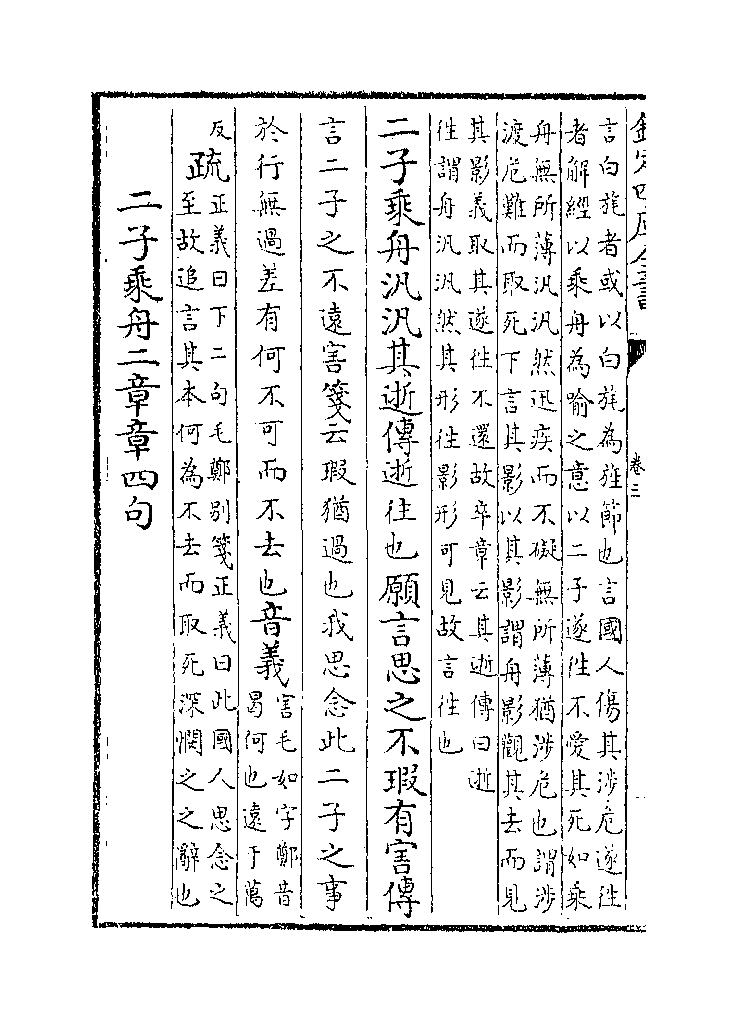 欽定四庫全書 卷三
言白旄者或以白旄為旌節也言國人傷其涉危遂往
者解經以乘舟為喻之意以二子遂往不愛其死如乘
舟無所薄汎汎然迅疾而不礙無所薄猶涉危也謂涉
渡危難而取死下言其影以其影謂舟影觀其去而見
其影義取其遂往不還故卒章云其逝傳曰逝
往謂舟汎汎然其形往影形可見故言往也
二子乘舟汎汎其逝傳逝往也願言思之不瑕有害傳
言二子之不遠害箋云瑕猶過也我思念此二子之事
於行無過差有何不可而不去也音義害毛如字鄭音
曷何也遠于萬
反疏正義曰下二句毛鄭別箋正義曰此國人思念之
至故追言其本何為不去而取死深憫之之辭也
二子乘舟二章章四句